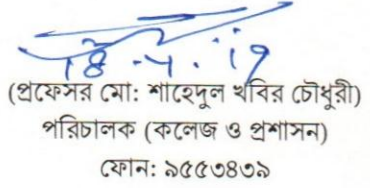 (প্রফেসর মো: শাহেদুল খবির চৌধুরী)
পরিচালক (কলেজ ও প্রশাসন)
ফোন: ৯৫৫৩৪৩৯